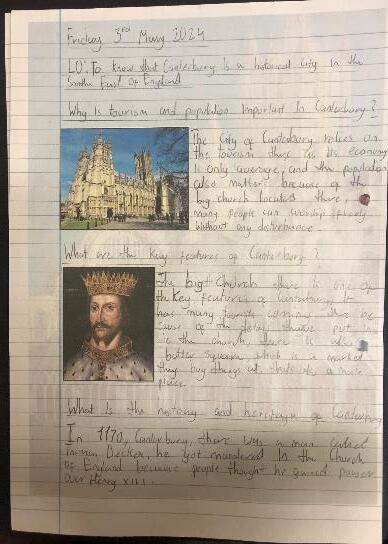 Friday 3rd May 2024
LO: To know that Canterbury is a historical city in the
South East of England
Why is tourism and population important in Canterbury?
The City of Canterbury relies on
the tourism there as its economy
is only average, and the population
also matters because of the
big church located there
many people can worship freely
without any disturbance
What are the key features of Canterbury?
The big church there is one of
the key features of Canterbury. It
has many tourists coming there be
cause of the
in the church, there is also a
butter square which is a market
they buy things at, thats also a main
place.
What is the history and heritage of Canterbury
In 1170, Canterbury, there was a man called
Becker, he got murdered in the Church
of England because people thought he gained power
over Henry